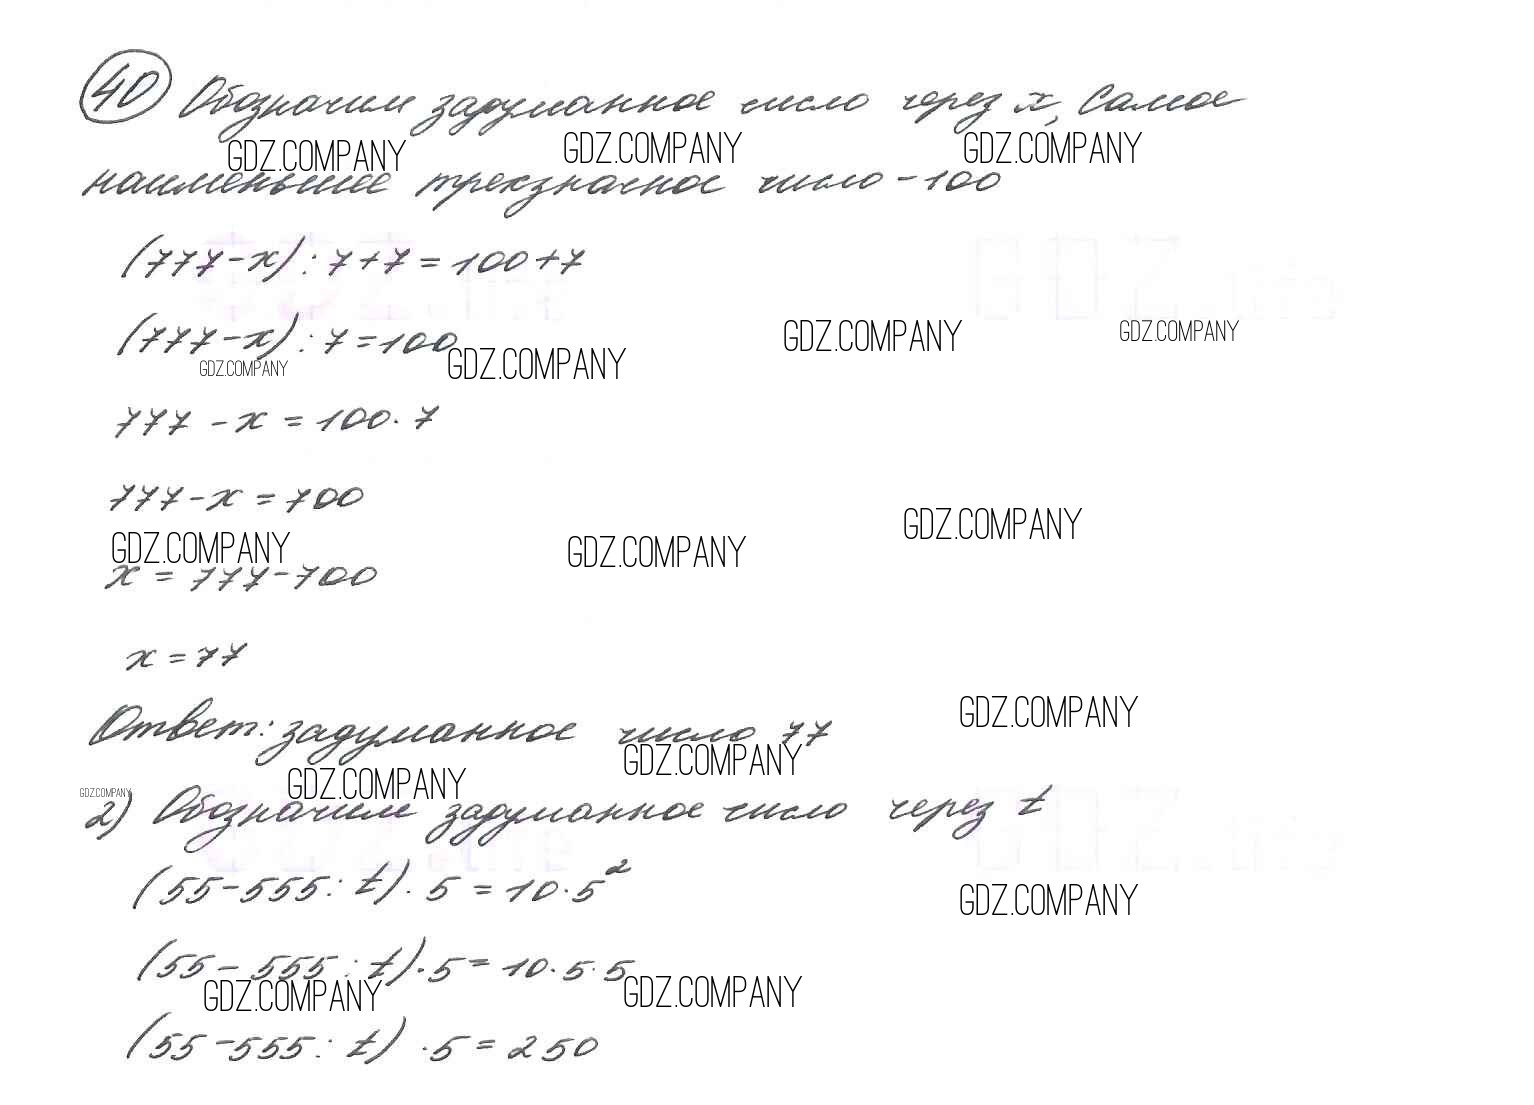 40 Обозначим задуманное число через x, самое
GDZ.COMPANY GDZ.COMPANY GDZ.COMPANY
наименьшее трехзначное число - 100
(777-x):7+7=100+7
(777-x):7=100
GDZ.COMPANY GDZ.COMPANY GDZ.COMPANY GDZ.COMPANY
777-x=100·7
777-x=700
GDZ.COMPANY GDZ.COMPANY GDZ.COMPANY
x=777-700
x=77
Ответ: задуманное число 77
GDZ.COMPANY
GDZ.COMPANY GDZ.COMPANY
GDZ.COMPANY
2) Обозначим задуманное число через t
(55-555:t)·5=10·5²
GDZ.COMPANY
(55-555:t)·5=10·5·5
GDZ.COMPANY GDZ.COMPANY
(55-555:t)·5=250